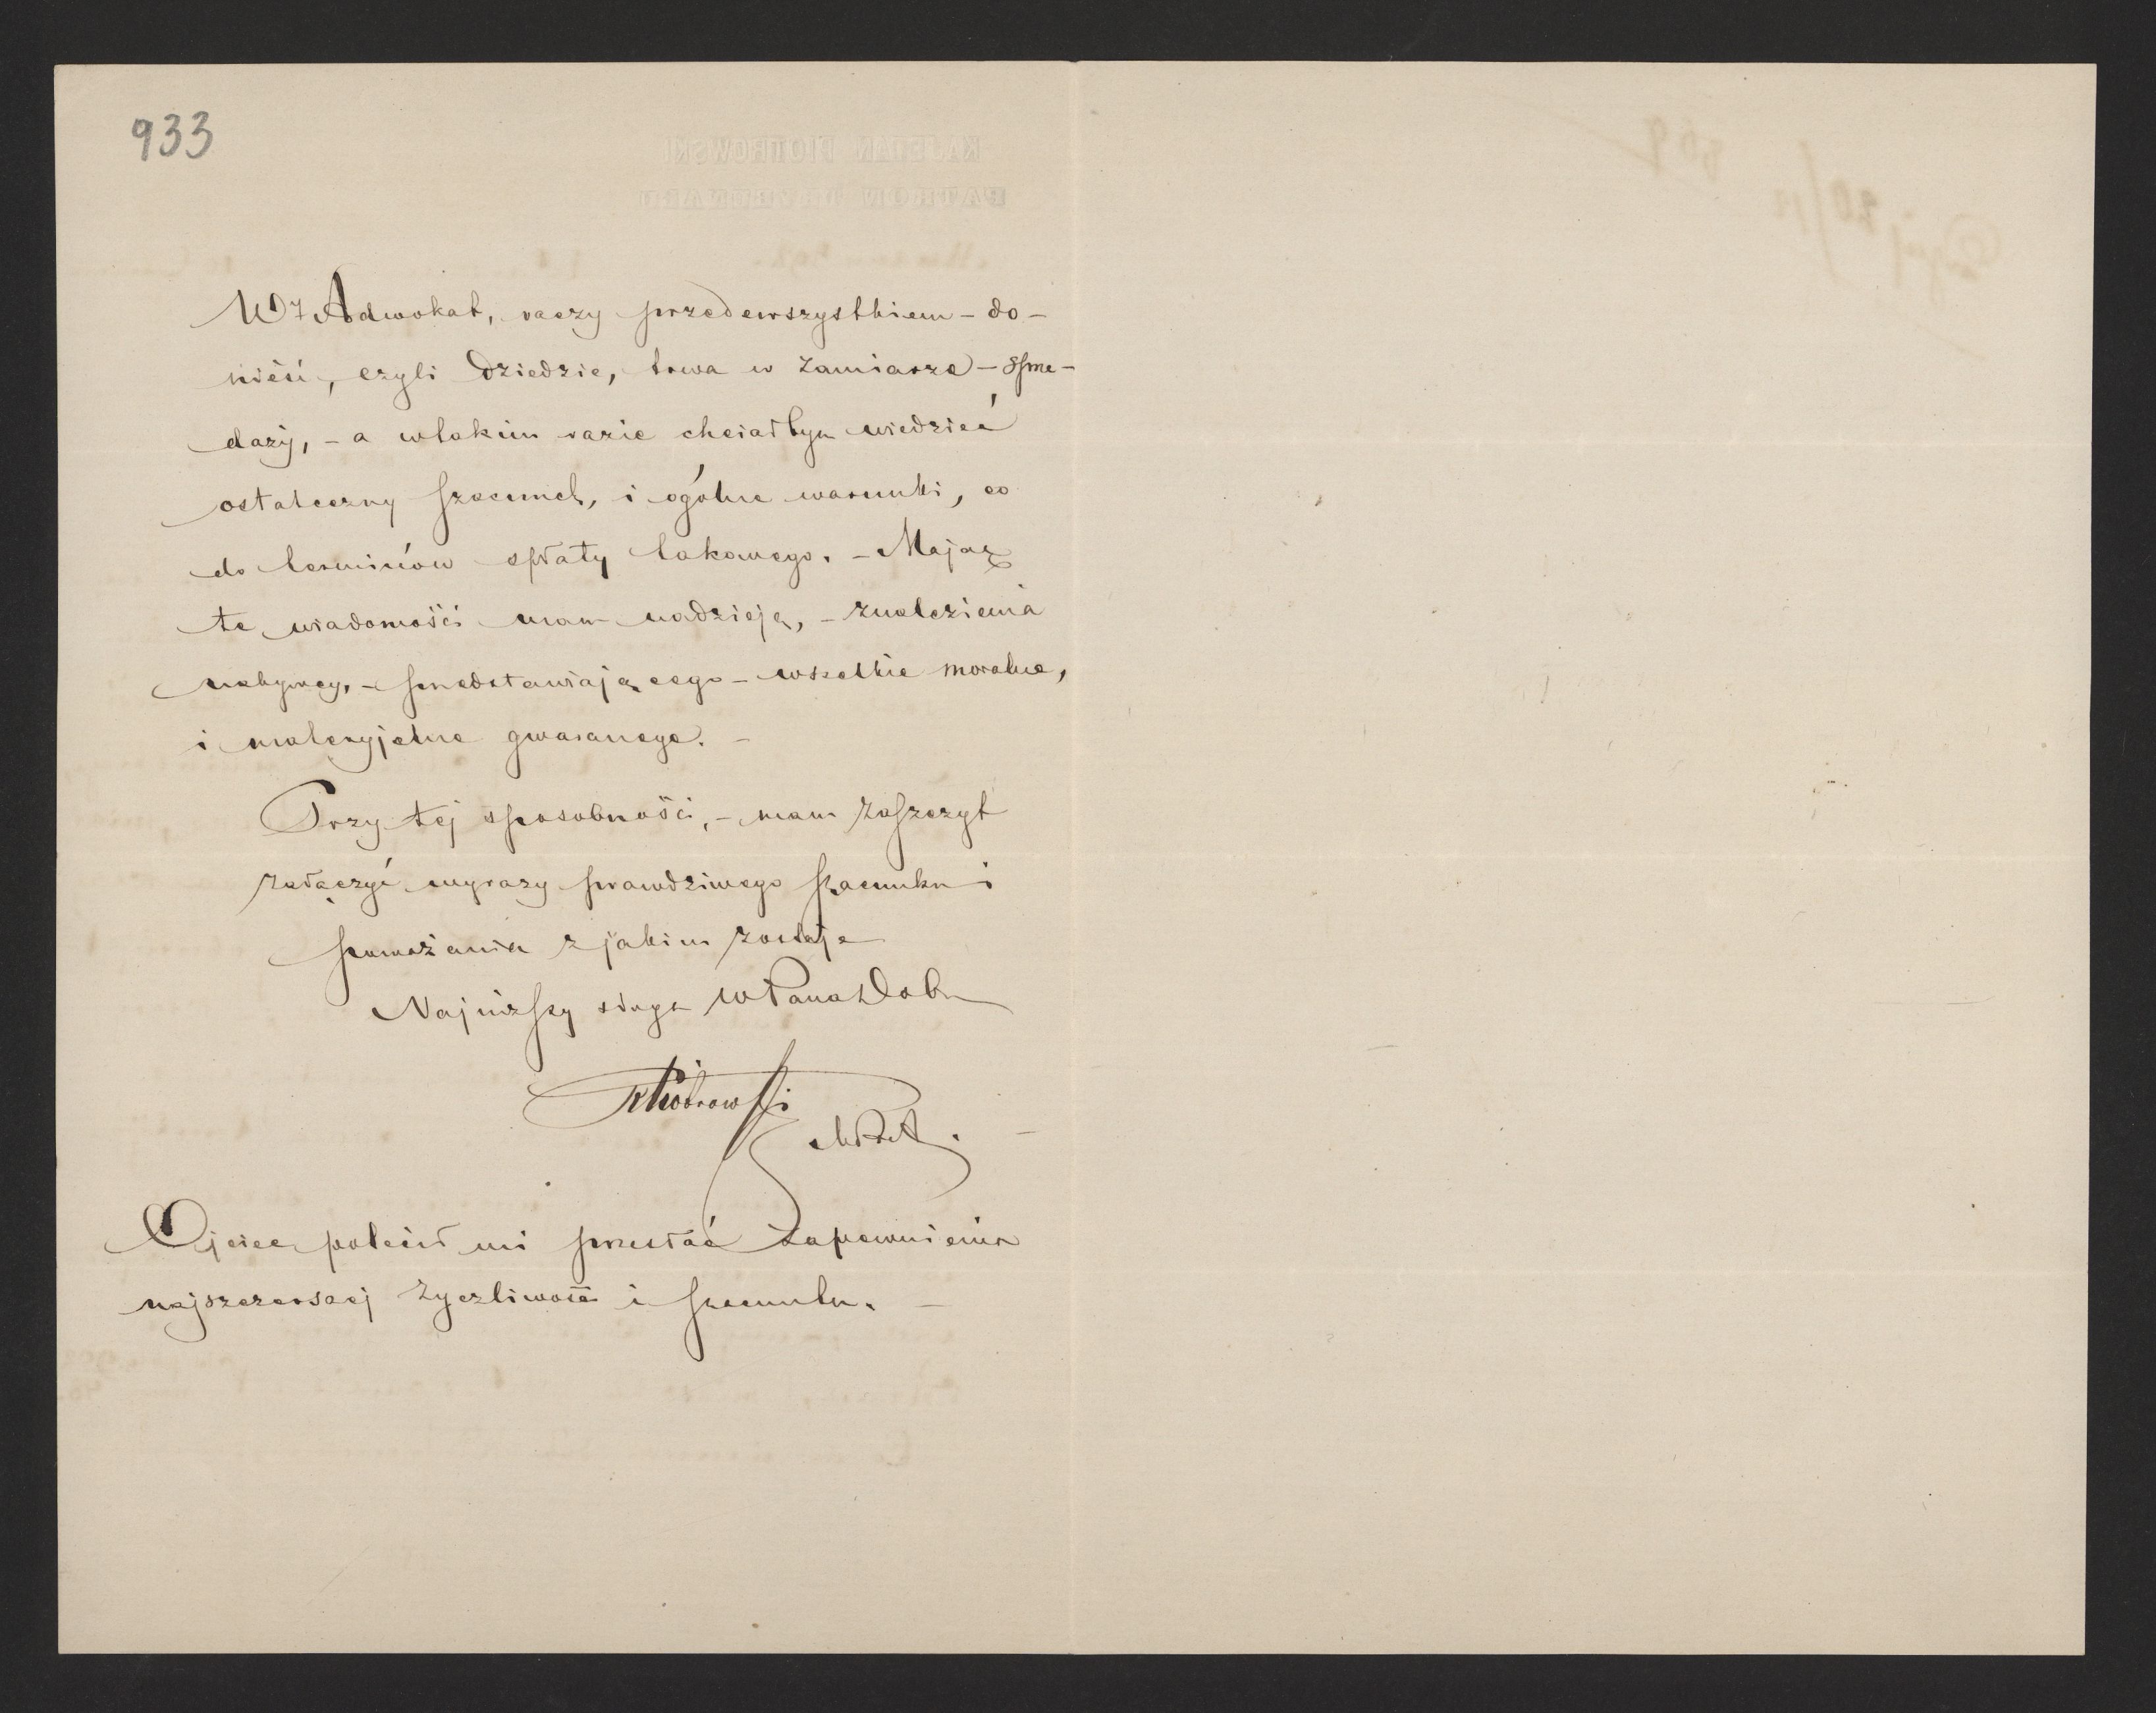 933
WJ Adwokat, raczy przedewszystkiem - do-
nieść, czyli Dziedzic, trwa w zamiarze - sprze-
daży, - a wtakim razie chciałbym wiedzieć
ostateczny szacunek, i ogólne warunki, co
do terminów spłaty takowego. - Mając
te wiadomości mam nadzieję, - znalezienia
nabywcy, - przedstawiającego - wszelkie moralne,
i materyjalne gwarancye. -
Przy tej sposobności, - mam zaszczyt
załączyć wyrazy prawdziwego szacunku i
poważania z jakim zostaję
Najniższy sługa WPana Dob
KPiotrowski
Ojciec polecił mi przesłać zapewnienia
najszczerszej życzliwości i szacunku. -
KAJETAN PIOTROWSKI
PATRON TRYBUNAŁU